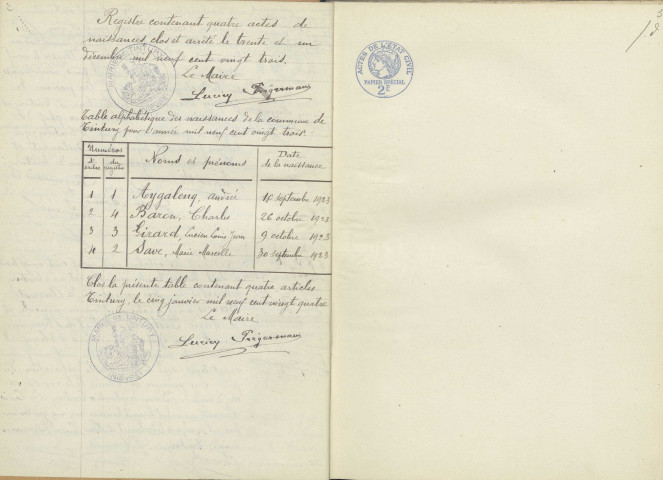 Registre contenant quatre actes de
naissances clos et arrêté le trente et un
décembre mil neuf cent vingt trois.
Le Maire
Table alphabétique des naissances de la commune de
Tintury pour l'année mil neuf cent vingt trois.
Numéros Noms et prénoms Date de la naissance
d'ordre du registre
1 1 Aygalenq, andré 16 septembre 1923
2 4 Baron, Charles 26 octobre 1923
3 3 Girard, Lucien Louis Jean 9 octobre 1923
4 2 Save, Marie Marcelle 30 septembre 1923
Clos la présente table contenant quatre articles.
Tintury, le cinq janvier mil neuf cent vingt quatre
Le Maire
ACTES DE L'ÉTAT CIVIL
PAPIER SPÉCIAL
2F